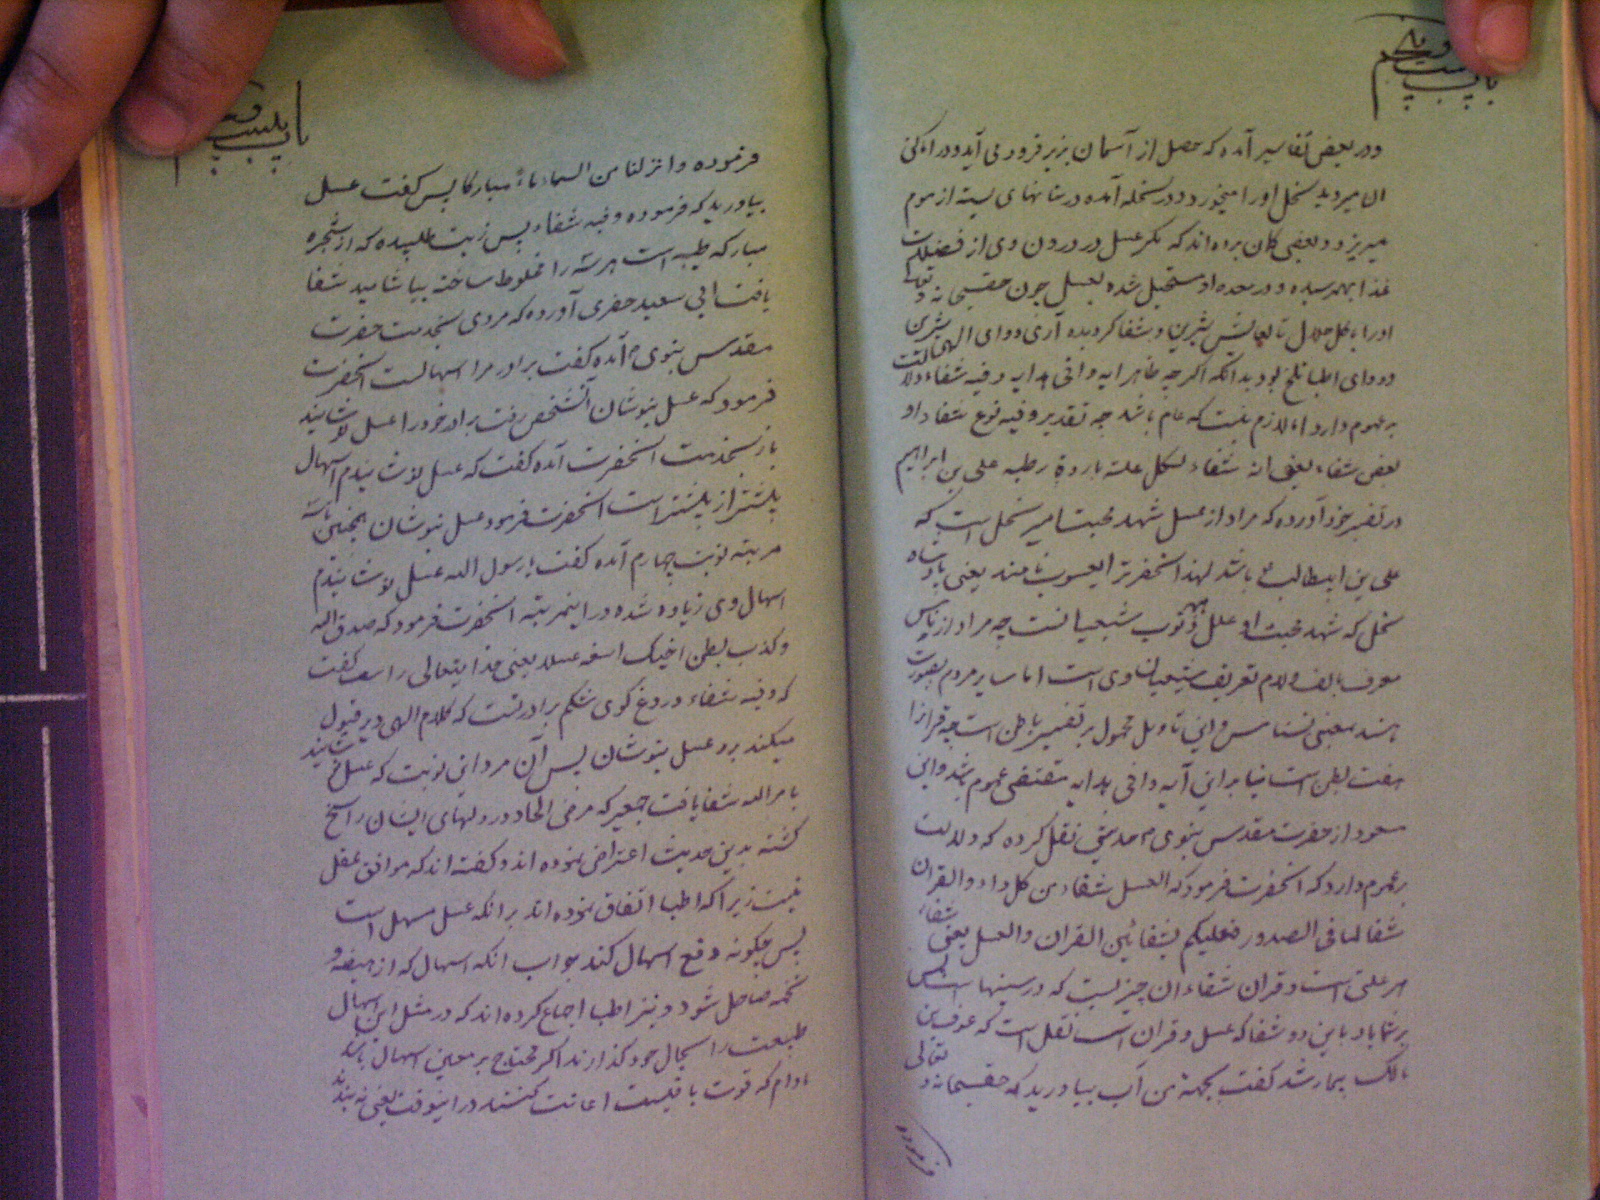 ودر بعض تفاسیر آمده که عسل از آسمان بزیر فرود می آید و در اماکنی
میریزد و بعضی کمان برده اند که بکر عسل در درون وی از فضلات
غذا بهم رسیده و در معده او مستحیل شده بعسل چون حقسبحانه و تعالی
دوای اطبا تلخ بود بدانکه اگر چه ظاهر آیه وافی هدایه و فیه شفاء دلالت
بر عموم دارد اما لازم نیست که عام باشد چه تقدیر و فیه نوع شفاء او
بعض شفاء یعنی انه شفاء لکل علة باردة رطبه علی بن ابراهیم
در تفسیر خود آورده که مراد از عسل شهد محبت امیر نحل است که
علی بن ابیطالب باشد لهذا آنحضرترا یعسوب نامند یعنی پادشاه
نحل که شهد محبت او علل ذنوب شیعیانست چه مراد از ناس
معرف بالف ولام تعریف شیعیان وی است اما سایر مردم بصورت
ناسند بمعنی نسناس و این تاویل محمول بر تفسیر باطن است چه قرانرا
هفت بطن است بنا براین آیه وافی هدایه مقتضی عموم باشد و ابن
مسعود از حضرت مقدس نبوی حدیثی نقل کرده که دلالت
بر عموم دارد که آنحضرت فرمود که العسل شفاء من کل داء والقران
شفا لما فی الصدور فعلیکم بشفائین القران والعسل یعنی عسل شفاء
هر علتی است و قران شفاء ان چیزیست که در سینهاست پس
بر شما باد باین دو شفا که عسل و قران است نقل است که عوف بن
مالک بیمار شد گفت بجهة من آب بیاورید که حقسبحانه و تعالی
فرموده
فرموده و انزلنا من السماء ماء مبارکا پس گفت عسل
بیاورید که فرموده و فیه شفاء پس زیت طلبیده که از شجره
مبارکه طیبه است هر سه را مخلوط ساخته بیاشامید شفا
یافت ابی سعید خدری آورده که مردی بخدمت حضرت
مقدس نبوی آمده گفت برادر مرا اسهالست آنحضرت
فرمود که عسل بنوشان آنشخص رفت برادر خود را عسل نوشانید
باز بخدمت آنحضرت آمده گفت که عسل نوشانیدم اسهال
بیشتر از پیشتر است آنحضرت فرمود عسل بنوشان همچنین تا سه
مرتبه نوبت چهارم آمده گفت یا رسول الله عسل نوشانیدم
اسهال وی زیاده شده در اینمرتبه آنحضرت فرمود که صدق الله
و کذب بطن اخیک اسقه عسلا یعنی خدایتعالی راست گفت
که و فیه شفاء و دروغ گوی شکم برادر تست که کلام الهی دیر قبول
میکند برو عسل بنوشان پس آن مرد این نوبت که عسل نوشانید
بامر الله شفا یافت جمعی که مرض الحاد در دلهای ایشان راسخ
گشته بدین حدیث اعتراض نموده اند و گفته اند که موافق عقل
نیست زیرا که اطبا اتفاق نموده اند بر انکه عسل مسهل است
پس چگونه دفع اسهال کند جواب انکه اسهال که از هیضه و
تخمه حاصل شود و نیز اطبا اجماع کرده اند که در مثل این اسهال
طبیعت را بحال خود گذارند اگر محتاج بر معین اسهال باشد
مادام که قوت باقیست اعانت کنند در اینوقت یعنی نه بندند